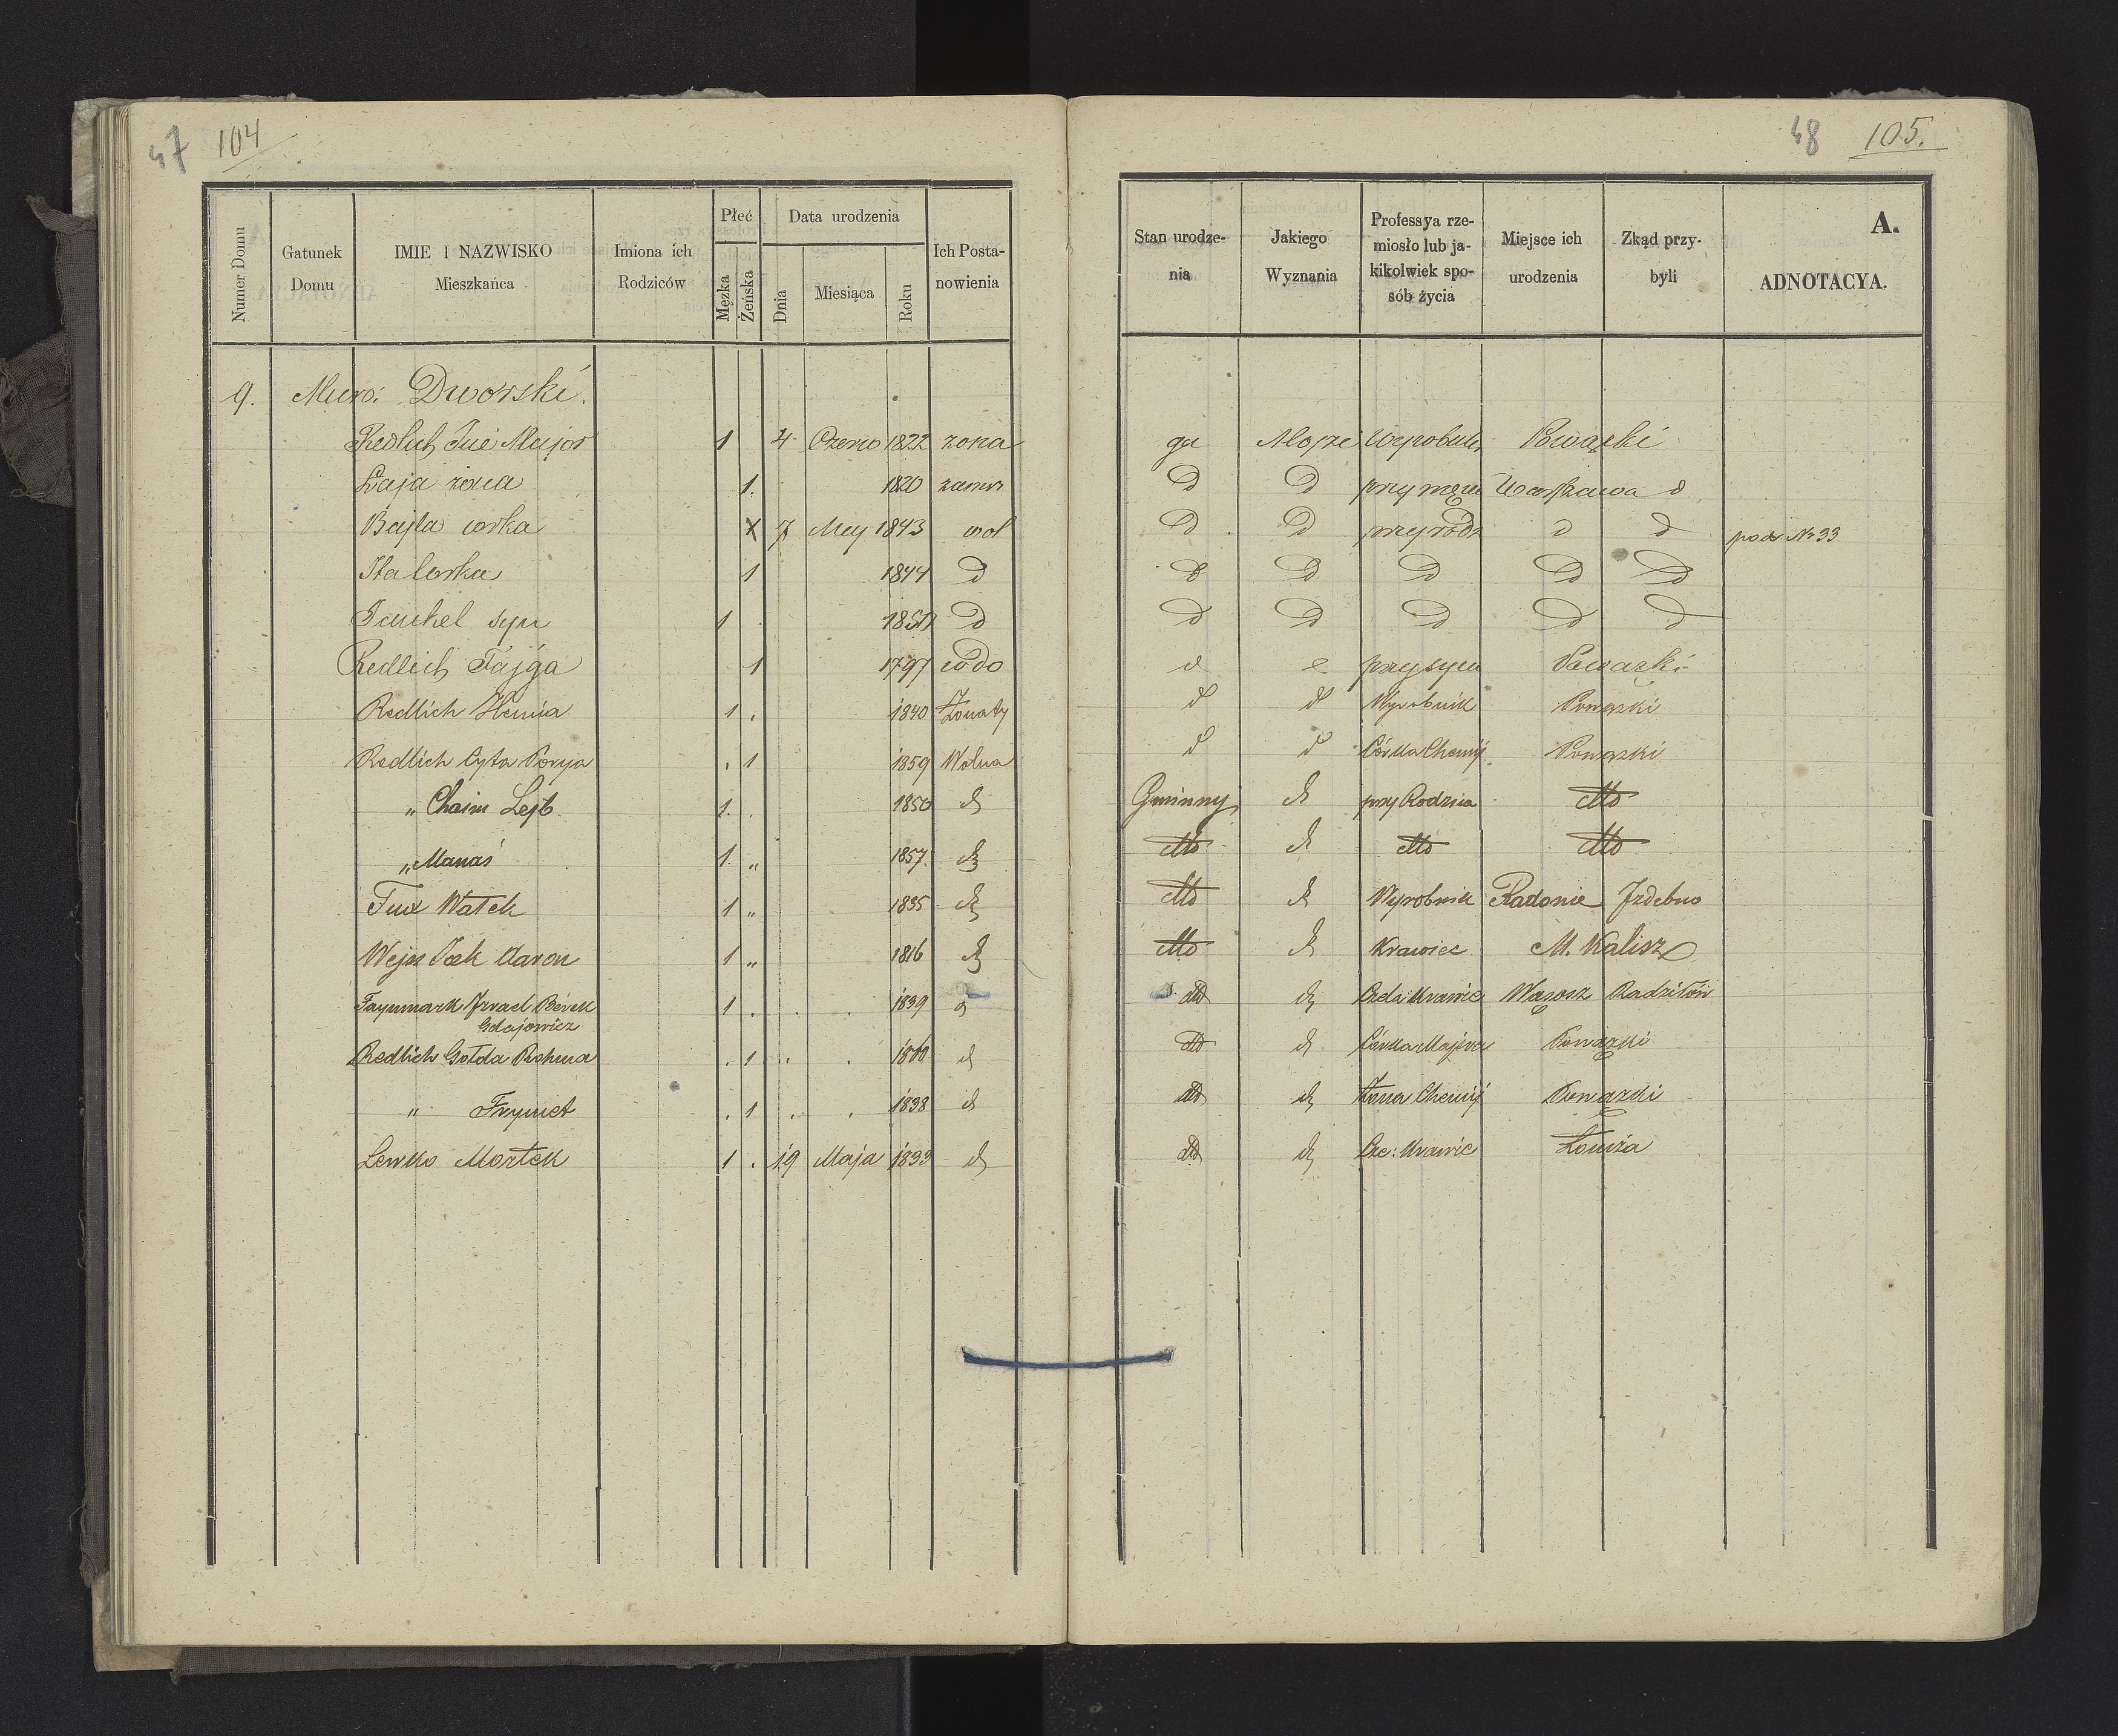 47 104
Numer Domu
Gatunek Domu
IMIE I NAZWISKO Mieszkańca
Imiona ich Rodziców
Płeć
Męzka
Żeńska
Data urodzenia
Dnia
Miesiąca
Roku
Ich Postanowienia
9. Muro: Dworski.
Redlich Major 1 4 Czerw 1822 zona
Łaja żona 1. 1820 zamz
Bajla corka X 7 Mey 1843 wol
Ita Corka 1 1844 D
Jankel syn 1 1850 D
Redlich Fajga 1 1797 wdo
Redlich Hemia 1 . 1840 Żonaty
Redlich Cyta Perya . 1 1859 Wolna
„ Chaim Lejb. 1. . 1850 d
„ Manaś 1. „ 1857. d
Fux Wałek 1 „ 1835 d
Wejn Icek Aaron 1 „ 1816 d
Faynmark Izrael Berek 1 . . . 1839 d
Gdajowicz
Redlich Gołda Ruchma . 1 „ . 1860 d
„ Frymet . 1 . . 1838 d
Lewko Mortek 1 . 19 Maja 1833 d
48 105.
A.
Stan urodzenia
Jakiego Wyznania
Professya rzemiosło lub jakikolwiek sposób życia
Miejsce ich urodzenia
Zkąd przybyli
ADNOTACYA.
ga Mojże Wyrobnik Powązki
D D przy mężu Warszawa d
D D przy rodz d d pod Nr 33
D D D D D
D D D D D
d d przy synu Powązki
d d Wyrobnik Powązki
d d Córka Chemij Powązki
Gminny d przy Rodzica dtto
dtto d dtto dtto
dtto d Wyrobnik Radonie Izdebno
dtto d Krawiec M. Kalisz
dtto d Czela Krawie Wąsosz Radziłów
dtto d Córka Majora Powązki
dtto d Żona Chemij Powązki
dtto d Cze: Krawie Łomża